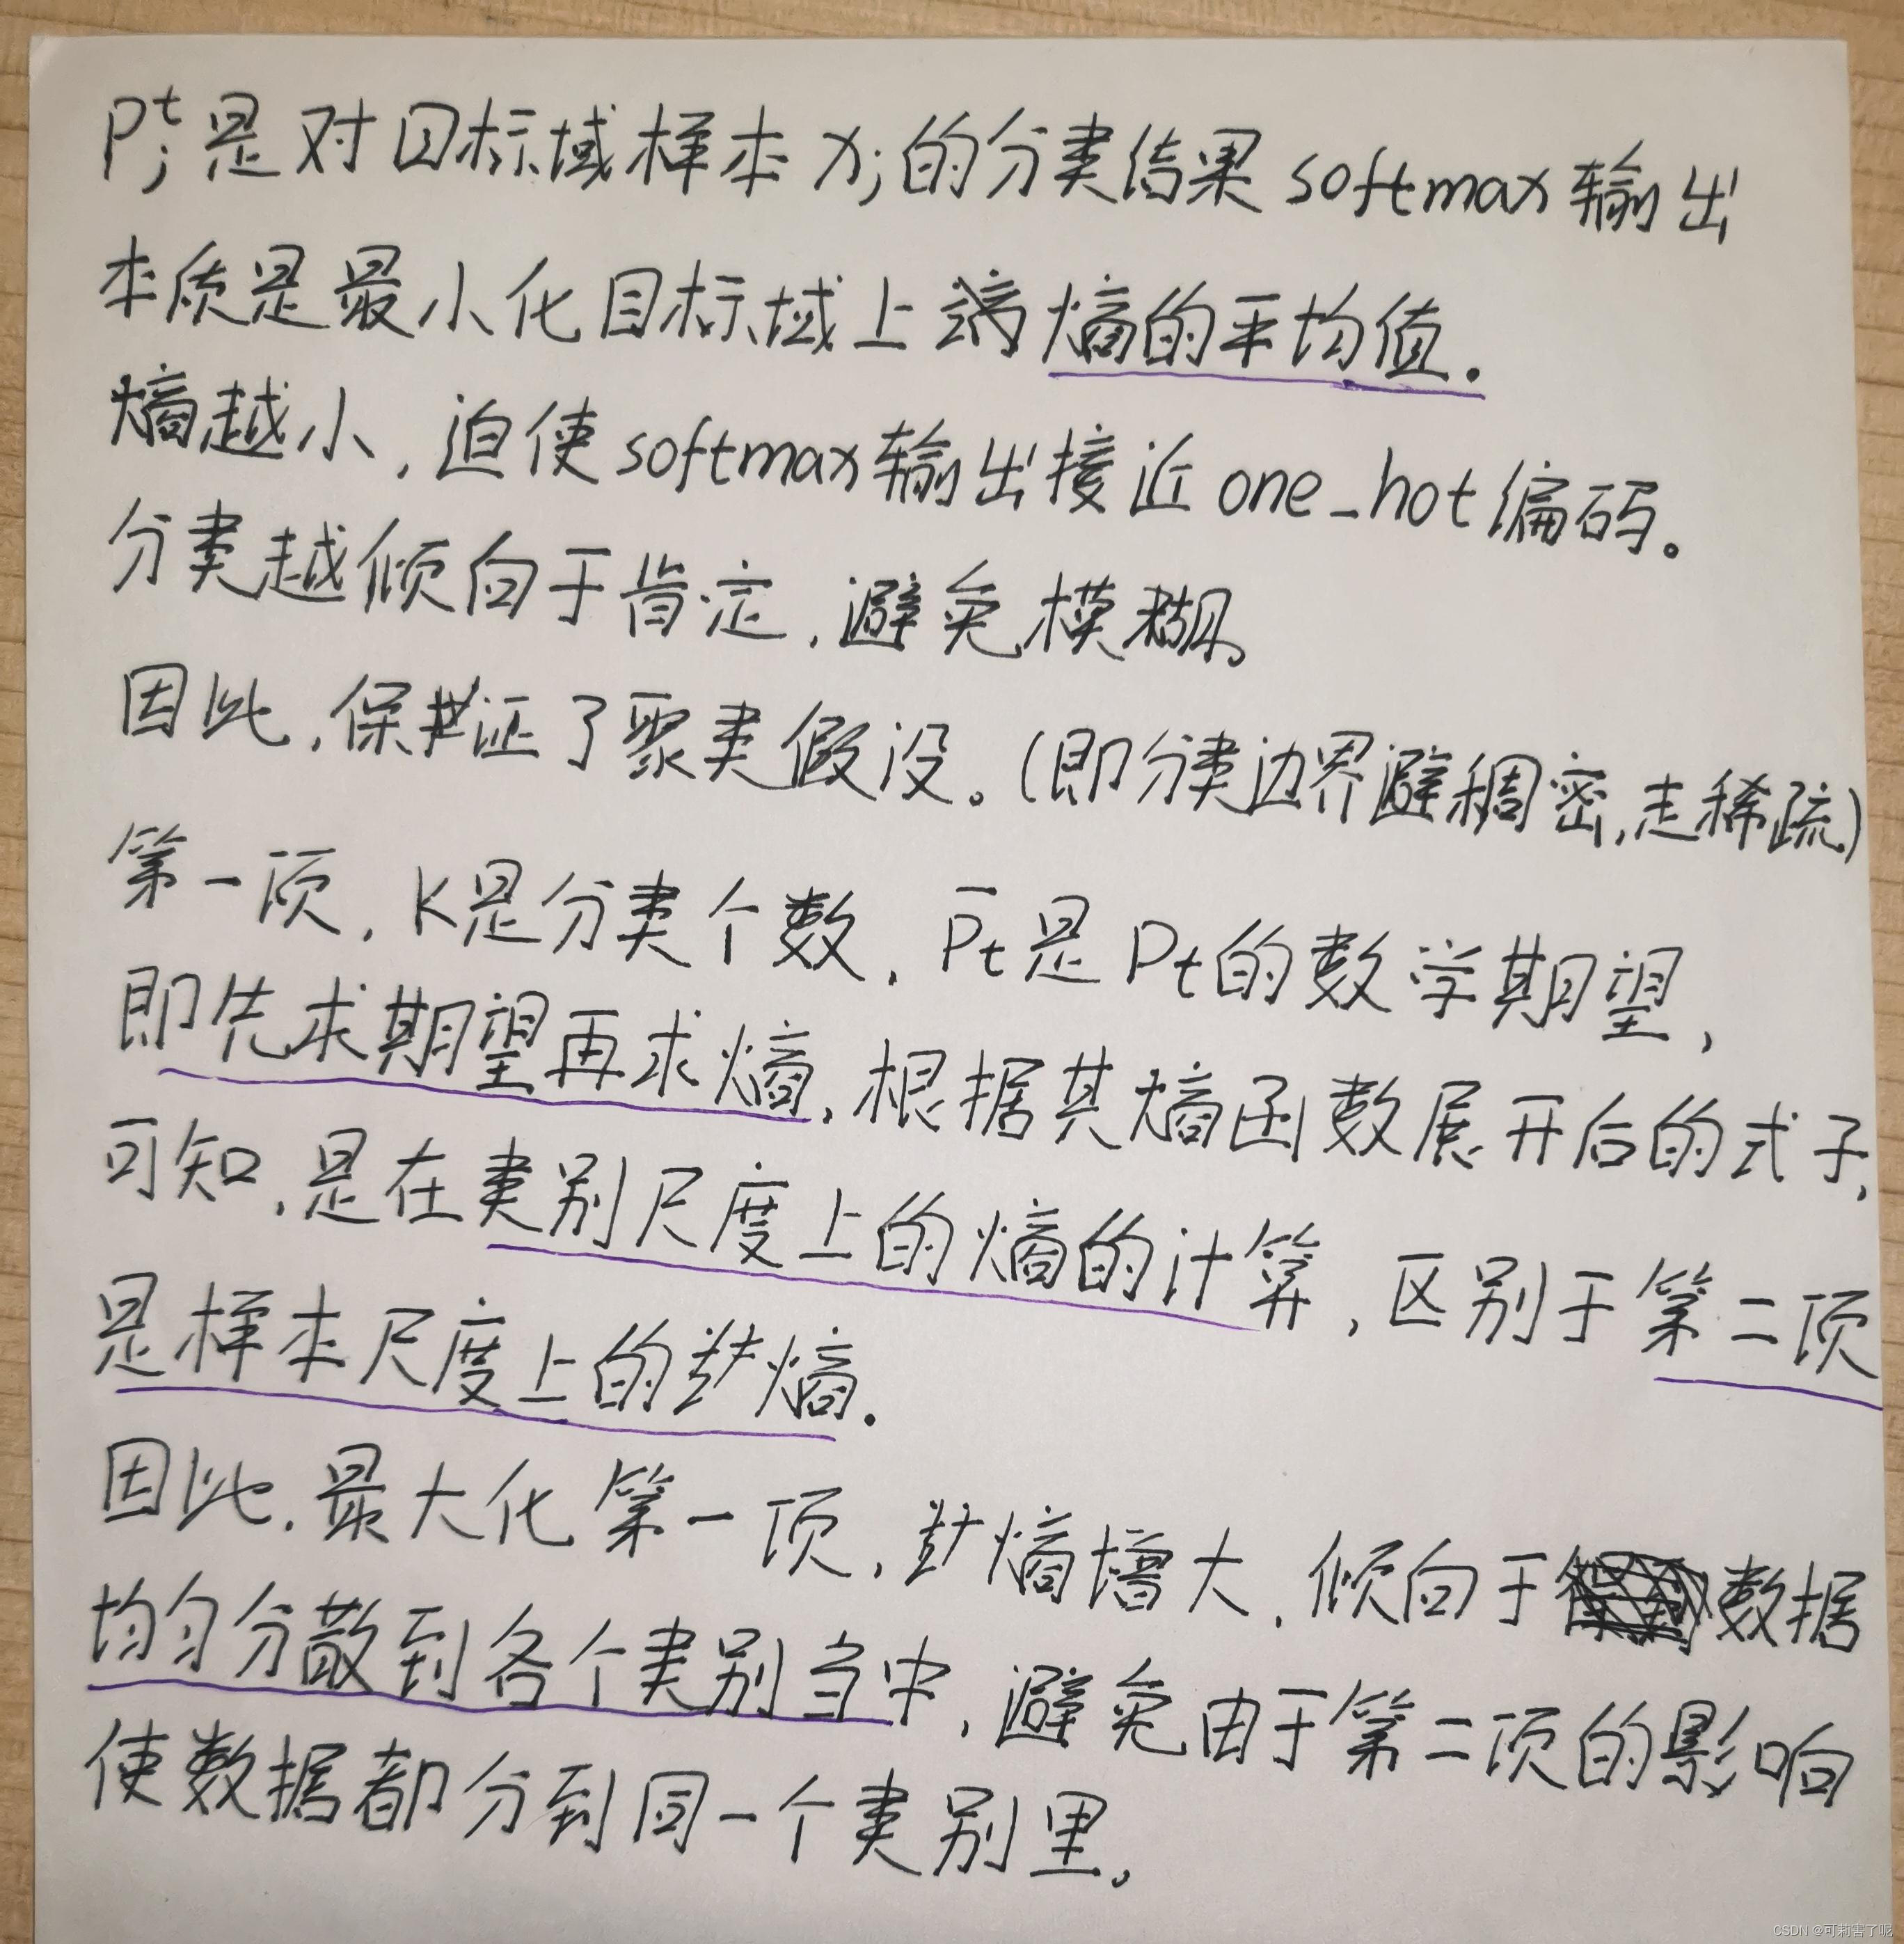 P_j^t是对目标域样本x_j的分类结果softmax输出
本质是最小化目标域上 熵的平均值.
熵越小,迫使softmax输出接近one_hot编码。
分类越倾向于肯定,避免模糊。
因此,保证了聚类假设。(即分类边界避稠密,走稀疏)
第一项,K是分类个数,P̄_t是P_t的数学期望,
即先求期望再求熵,根据其熵函数展开后的式子,
可知,是在类别尺度上的熵的计算,区别于第二项
是样本尺度上的熵.
因此,最大化第一项,熵增大,倾向于数据
均匀分散到各个类别当中,避免由于第二项的影响
使数据都分到同一个类别里.
CSDN @可莉害了呢